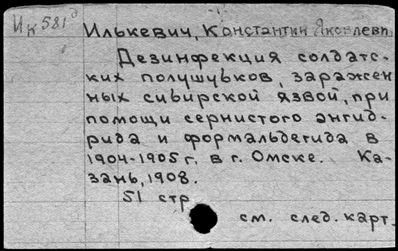 Ик 581д
Илькевич, Константин Яковлевич
Дезинфекция солдатс-
ких полушубков, заражен
ных сибирской язвой, при
помощи сернистого ангид-
рида и формальдегида в
1904-1905 г. в г. Омске. Ка-
зань, 1908.
51 стр
см. след. карт.